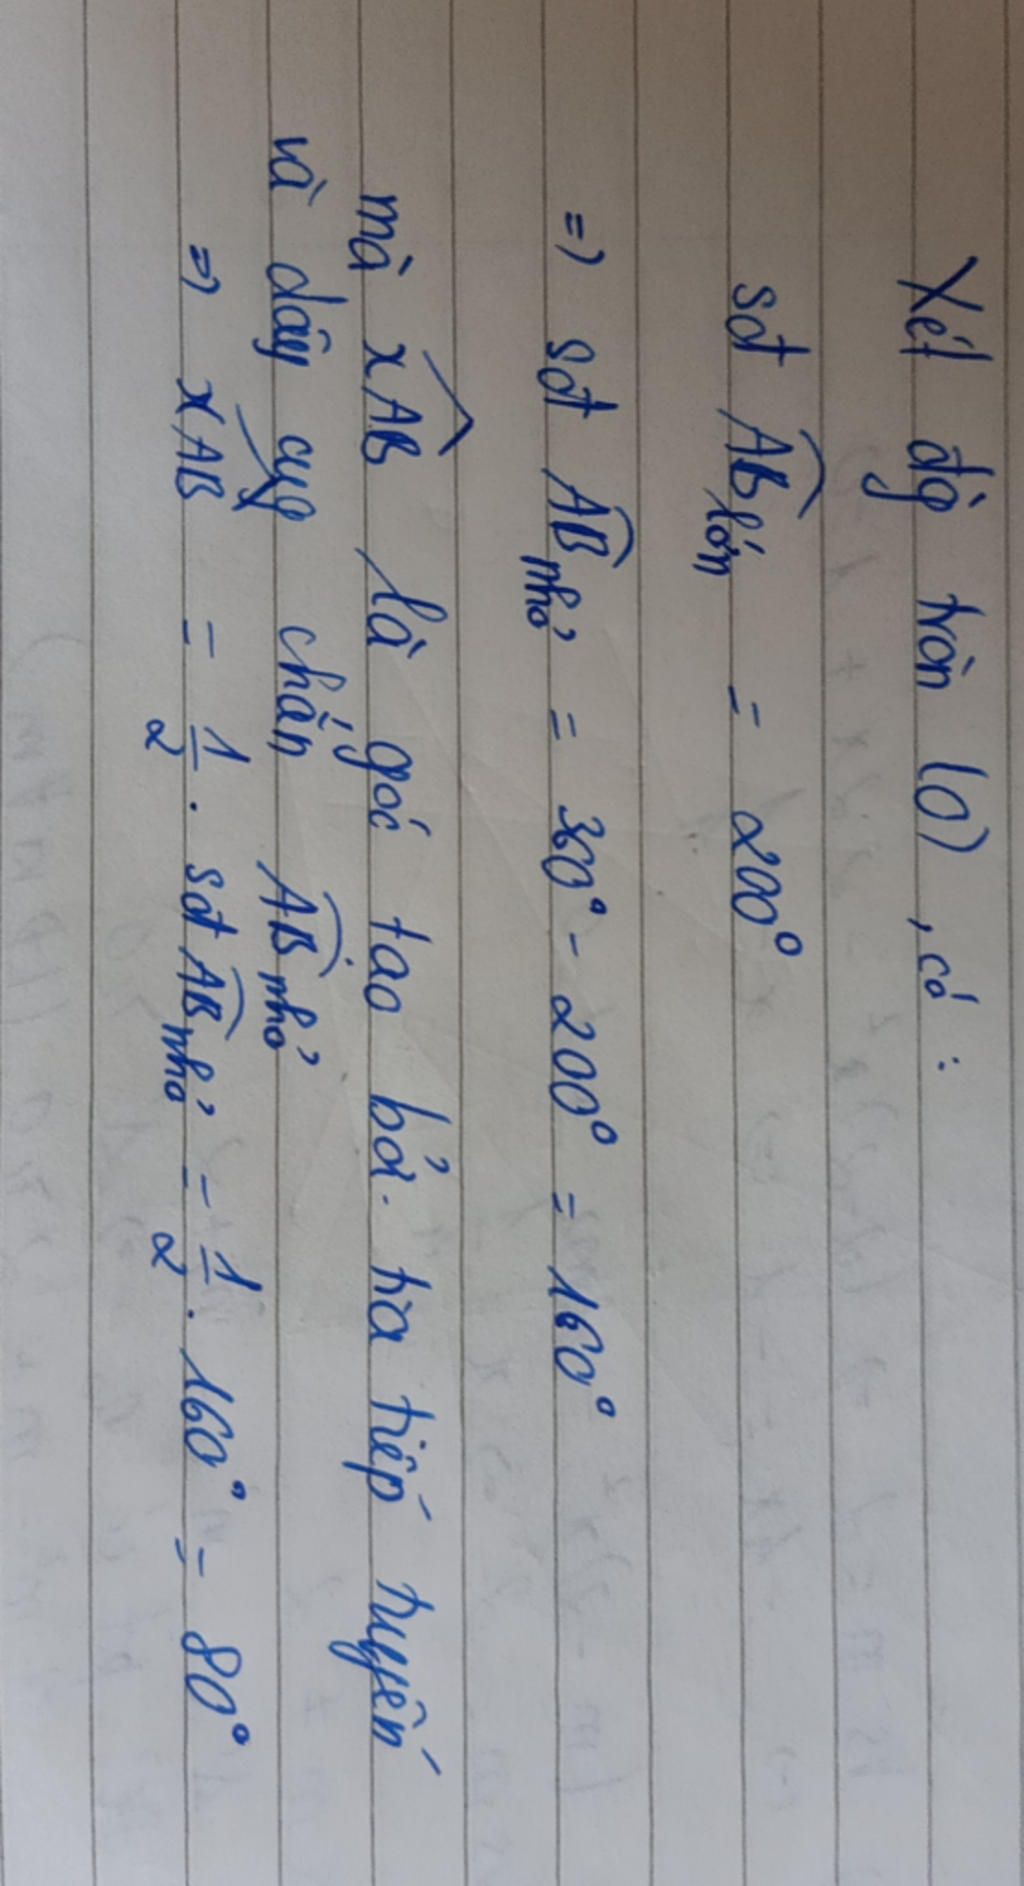 Xét đg tròn (O), có:
sđ AB lớn = 200°
=> sđ AB nhỏ = 360° - 200° = 160°
mà xAB là góc tạo bởi tia tiếp tuyến
và dây cung chắn AB nhỏ
=> xAB = 1/2 . sđ AB nhỏ = 1/2 . 160° = 80°